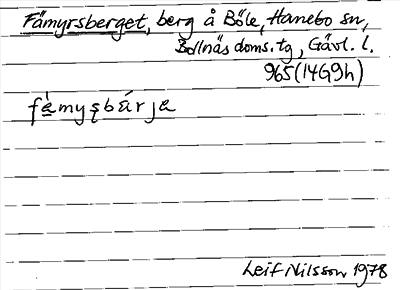 Fämyrsberget, berg å Böle, Hanebo sn,
Bollnäs doms.tg, Gävl. l.
965(14G9h)
fä̀myşbárja
Leif Nilsson 1978